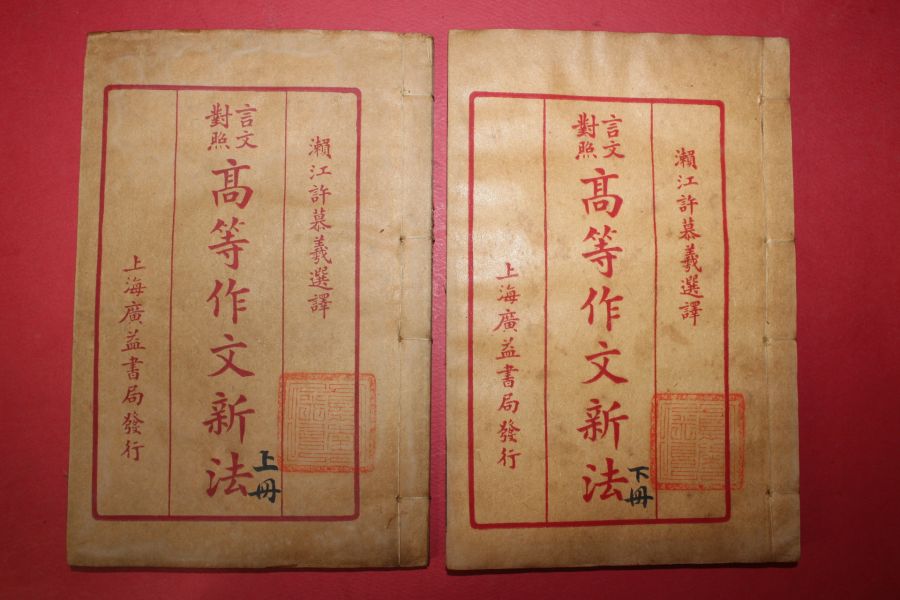 瀨江許慕羲選譯
言文
對照
高等作文新法
上冊
上海廣益書局發行
瀨江許慕羲選譯
言文
對照
高等作文新法
下冊
上海廣益書局發行